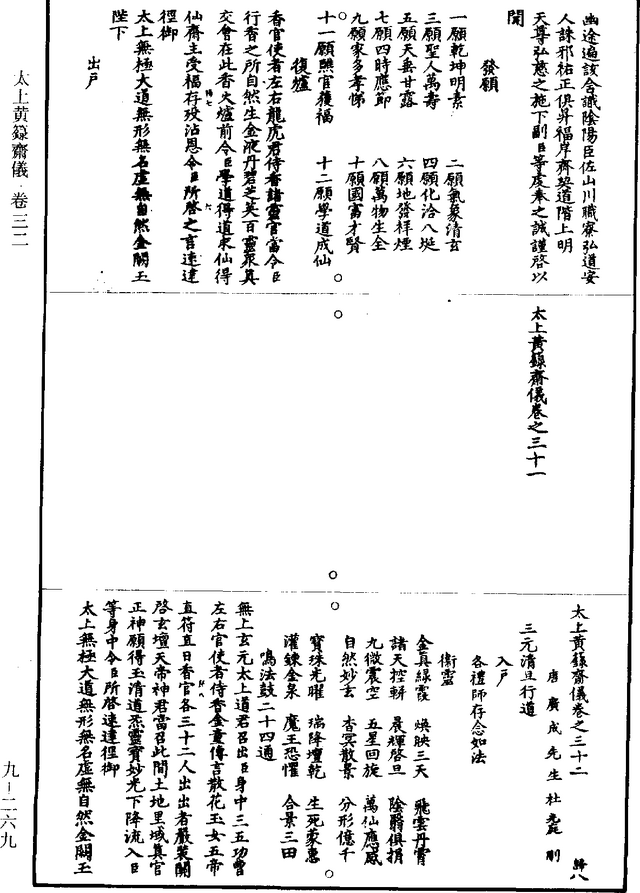 幽途遍該含識陰陽臣佐山川職寮弘道安
人誅邪祐正俱昇福岸齊契道階上明
天尊弘慈之施下副臣等虔奉之誠謹啓以
聞
發願
一願乾坤明素
二願氣象清玄
三願聖人萬壽
四願化洽八埏
五願天垂甘露
六願地發祥煙
七願四時應節
八願萬物生全
九願家多孝悌
十願國富才賢
十一願照官獲福
十二願學道成仙
復爐
香官使者左右龍虎君侍香諸靈官當令臣
行香之所自然生金液丹碧芝英百靈衆真
交會在此香火爐前令臣學道得道求仙得
仙齋主受福存歿沾恩令臣所啓之言速達
徑御
太上無極大道無形無名虛無自然金闕玉
陛下
出戶
太上黃籙齋儀卷之三十一
太上黃籙齋儀卷之三十二 歸八
唐廣成先生杜光庭刪
三元清旦行道
入戶
各禮師存念如法
衞靈
金真絳霞 煥映三天 飛雲丹霄
諸天控輧 晨輝啓旦 陰翳俱捐
九微震空 五星回旋 萬仙應感
自然妙玄 杳冥散景 分形億千
寶珠光曜 瑞降壇乾 生死蒙惠
灌鍊金泉 魔王恐懼 合景三田
鳴法鼓二十四通
無上玄元太上道君召出臣身中三五功曹
左右官使者侍香金童傳言散花玉女五帝
直符直日香官各三十二人出出者嚴裝關
啓玄壇天帝神君當召此間土地里域真官
正神願得玉清道炁靈寶妙光下降流入臣
等身中令臣所啓速達徑御
太上無極大道無形無名虛無自然金闕玉
太上黄籙齋儀 卷三二
九-二六九